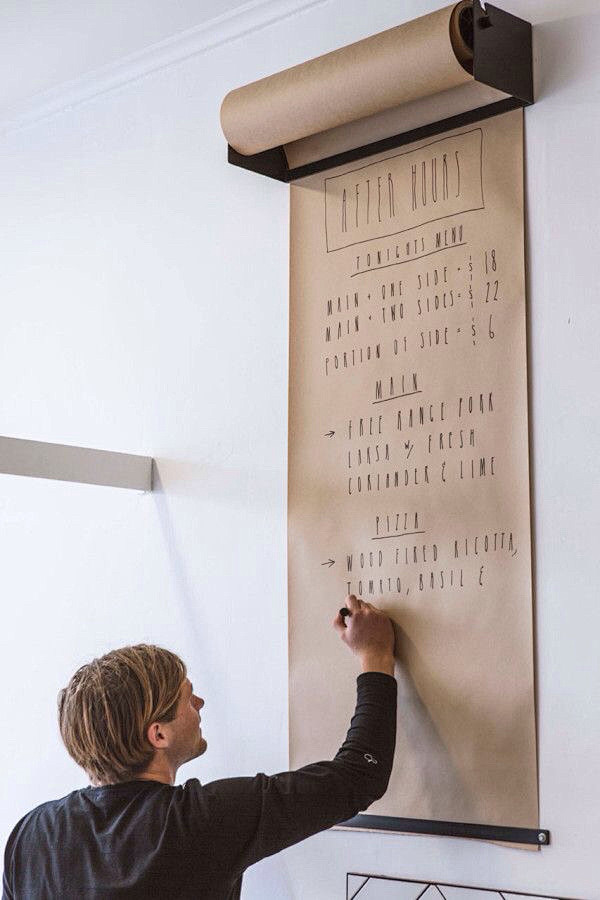 AFTER HOURS
TONIGHTS MENU
MAIN + ONE SIDE = $ 18
MAIN + TWO SIDES = $ 22
PORTION OF SIDE = $ 6
MAIN
→ FREE RANGE PORK
LAKSA W/ FRESH
CORIANDER & LIME
PIZZA
→ WOOD FIRED RICOTTA,
TOMATO, BASIL &